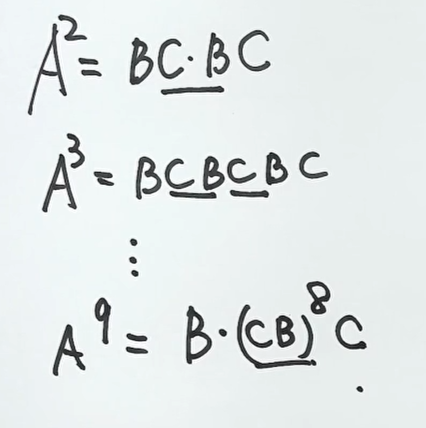 A² = BC·BC
A³ = BCBCBC
⋮
A⁹ = B·(CB)⁸C.